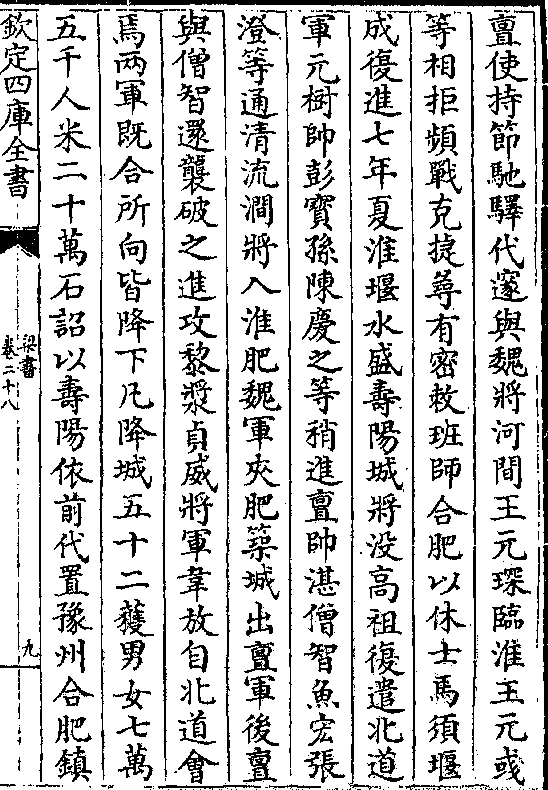 亶使持節馳驛代邃與魏將河間王元琛臨淮王元彧
等相拒頻戰克捷尋有密敕班師合肥以休士馬須堰
成復進七年夏淮堰水盛壽陽城將没高祖復遣北道
軍元樹帥彭寶孫陳慶之等稍進亶帥湛僧智魚宏張
澄等通清流澗將入淮肥魏軍夾肥築城出亶軍後亶
與僧智還襲破之進攻黎漿貞威將軍韋放自北道會
焉兩軍既合所向皆降下凡降城五十二獲男女七萬
五千人米二十萬石詔以壽陽依前代置豫州合肥鎮
欽定四庫全書
梁書
卷二十八
九